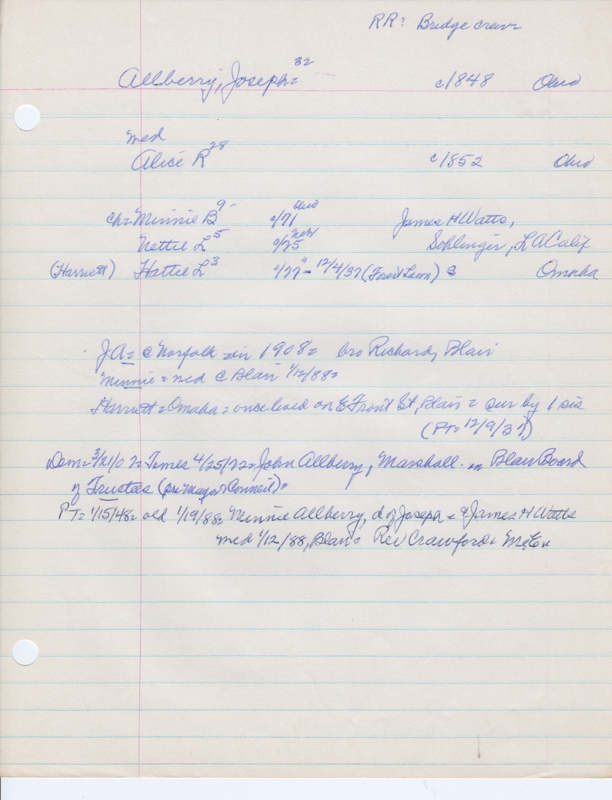 RR: Bridge crew
Allberry, Joseph = 32 c1848 Ohio
med
Alice R 28 c1852 Ohio
ch = Minnie B 9 - c/71 Ohio James H Watts,
Nettie L 5 c/75 Neb LA Calif
(Harriett) Hattie L 3 c/77 " - 12/4/37 (Forest Lawn) s Omaha
JA = @ Norfolk = in 1908 = bro Richard, Blair
Minnie = med @ Blair 1/12/88 =
Harriett = Omaha = once lived on E Front St, Blair = sur by 1 sis
(PT = 12/9/37)
Dem = 3/21/07 = Times 4/25/72 = John Allberry, Marshall in Blair Board
of Trustees (pre Mayor & Council) =
PT = 1/15/48 = old 1/19/88 = Minnie Allberry, d of Joseph = & James H Watts
med 1/12/88, Blair = Rev Crawford